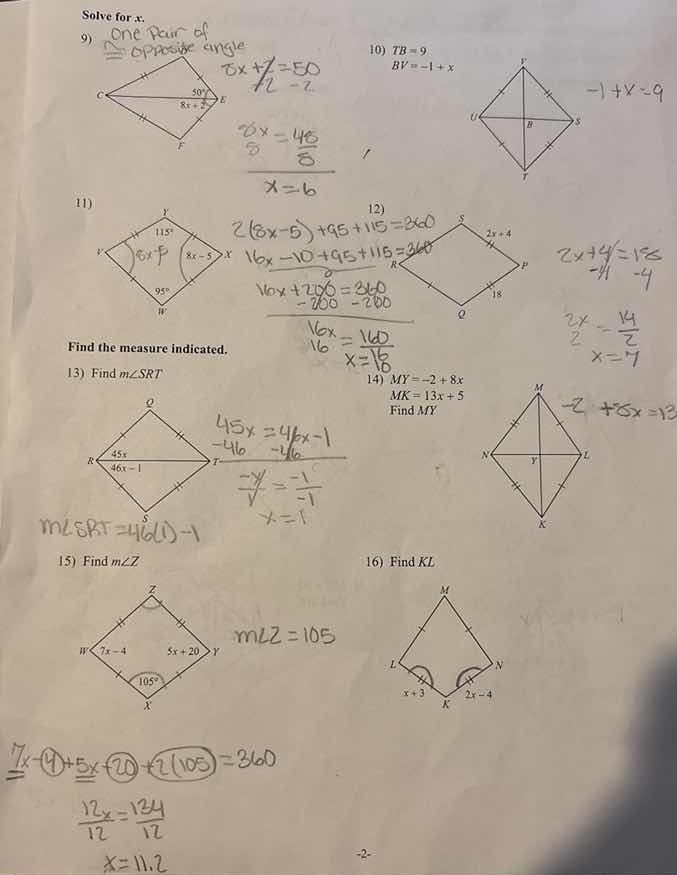 Solve for x.
9) one pair of
≅ opposite angle
C
50°
8x + 2
E
F
8x + 2 = 50
-2 -2
8x = 48
8 8
x = 6
10) TB = 9
BV = −1 + x
V
U
B
S
T
-1 + x = 9
11)
Y
115°
V
8x-5
8x − 5
X
95°
W
2(8x-5) + 95 + 115 = 360
16x - 10 + 95 + 115 = 360
16x + 200 = 360
-200 -200
16x = 160
16 16
x = 10
12)
S
2x + 4
R
P
18
Q
2x + 4 = 18
-4 -4
2x = 14
2 2
x = 7
Find the measure indicated.
13) Find m∠SRT
Q
45x
R
T
46x − 1
S
45x = 46x - 1
-46 -46
-x = -1
-1
x = 1
m∠SRT = 46(1) - 1
14) MY = −2 + 8x
MK = 13x + 5
Find MY
M
N
Y
L
K
-2 + 8x = 13
15) Find m∠Z
Z
W
7x − 4
5x + 20
Y
105°
X
m∠Z = 105
7x - 4 + 5x + 20 + 2(105) = 360
12x = 134
12 12
x = 11.2
16) Find KL
M
L
N
x + 3
K
2x − 4
-2-